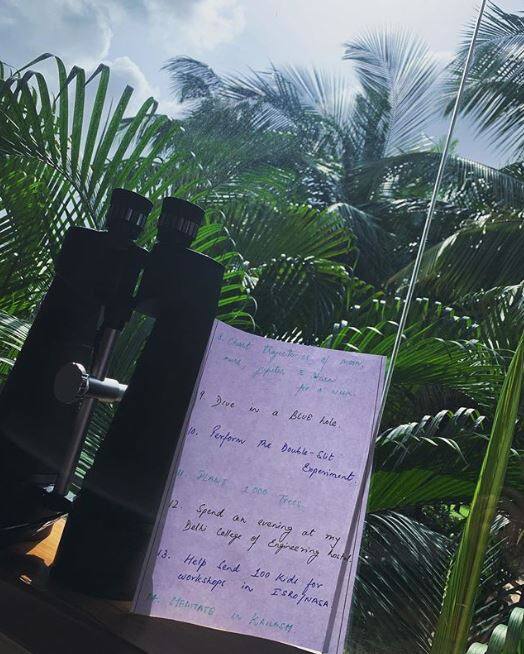 8. Chart Trajectories of moon,
mars, jupiter & Saturn
for a week.
9. Dive in a BLUE hole.
10. Perform the Double-Slit
Experiment
11. PLANT 1000 TREES
12. Spend an evening at my
Delhi College of Engineering hostel.
13. Help send 100 Kids for
workshops in ISRO/NASA
14. MEDITATE in KAILASH